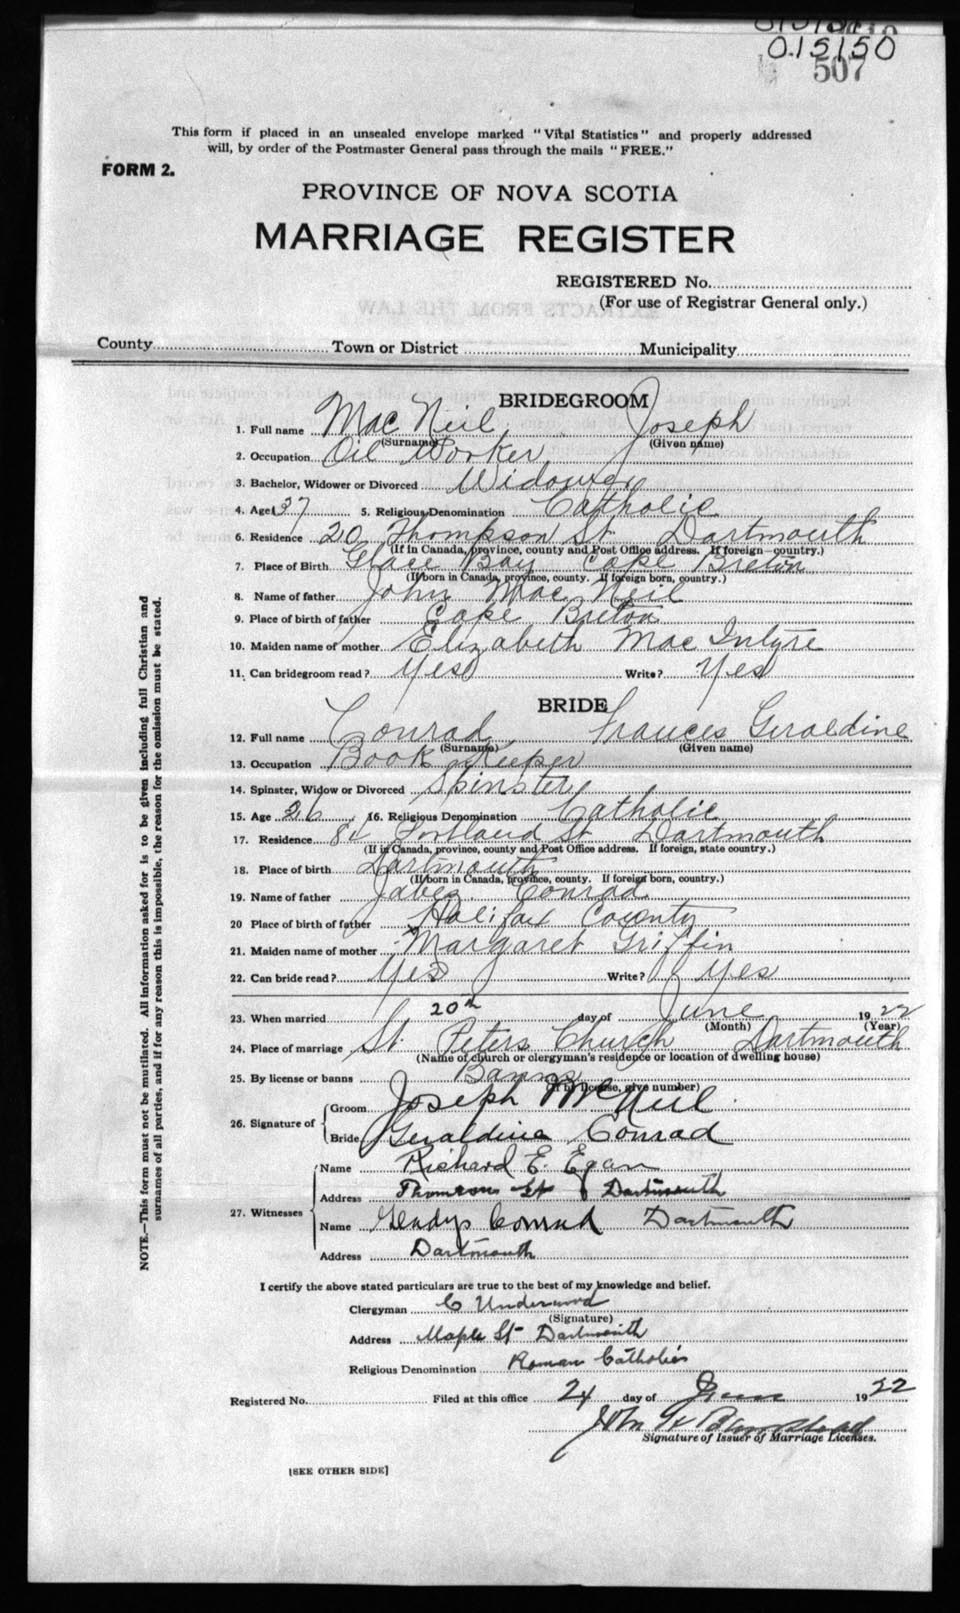 015150
507
This form if placed in an unsealed envelope marked "Vital Statistics" and properly addressed
will, by order of the Postmaster General pass through the mails "FREE."
FORM 2.
PROVINCE OF NOVA SCOTIA
MARRIAGE REGISTER
REGISTERED No.
(For use of Registrar General only.)
County Town or District Municipality
BRIDEGROOM
1. Full name Mac Neil Joseph
(Surname) (Given name)
2. Occupation Oil Worker
3. Bachelor, Widower or Divorced Widower
4. Age 37 5. Religious Denomination Catholic
6. Residence 20 Thompson St Dartmouth
(If in Canada, province, county and Post Office address. If foreign—country.)
7. Place of Birth Glace Bay Cape Breton
(If born in Canada, province, county. If foreign born, country.)
8. Name of father John Mac Neil
9. Place of birth of father Cape Breton
10. Maiden name of mother Elizabeth Mac Intyre
11. Can bridegroom read? Yes Write? Yes
BRIDE
12. Full name Conrad Frances Geraldine
(Surname) (Given name)
13. Occupation Book Keeper
14. Spinster, Widow or Divorced Spinster
15. Age 26 16. Religious Denomination Catholic
17. Residence 84 Portland St Dartmouth
(If in Canada, province, county and Post Office address. If foreign, state country.)
18. Place of birth Dartmouth
(If born in Canada, province, county. If foreign born, country.)
19. Name of father Jabez Conrad
20 Place of birth of father Halifax County
21. Maiden name of mother Margaret Griffin
22. Can bride read? Yes Write? Yes
23. When married 20th day of June 1922
(Month) (Year)
24. Place of marriage St Peters Church Dartmouth
(Name of church or clergyman's residence or location of dwelling house)
25. By license or banns Banns
(If by license, give number)
26. Signature of Groom Joseph McNeil
Bride Geraldine Conrad
27. Witnesses Name Richard E. Egan
Address Thomson St Dartmouth
Name Gladys Conrad Dartmouth
Address Dartmouth
I certify the above stated particulars are true to the best of my knowledge and belief.
Clergyman C Underwood
(Signature)
Address Maple St Dartmouth
Religious Denomination Roman Catholic
Registered No. Filed at this office 24 day of June 1922
Signature of Issuer of Marriage Licenses.
[SEE OTHER SIDE]
NOTE.—This form must not be mutilated. All information asked for is to be given including full Christian and
surnames of all parties, and if for any reason this is impossible, the reason for the omission must be stated.